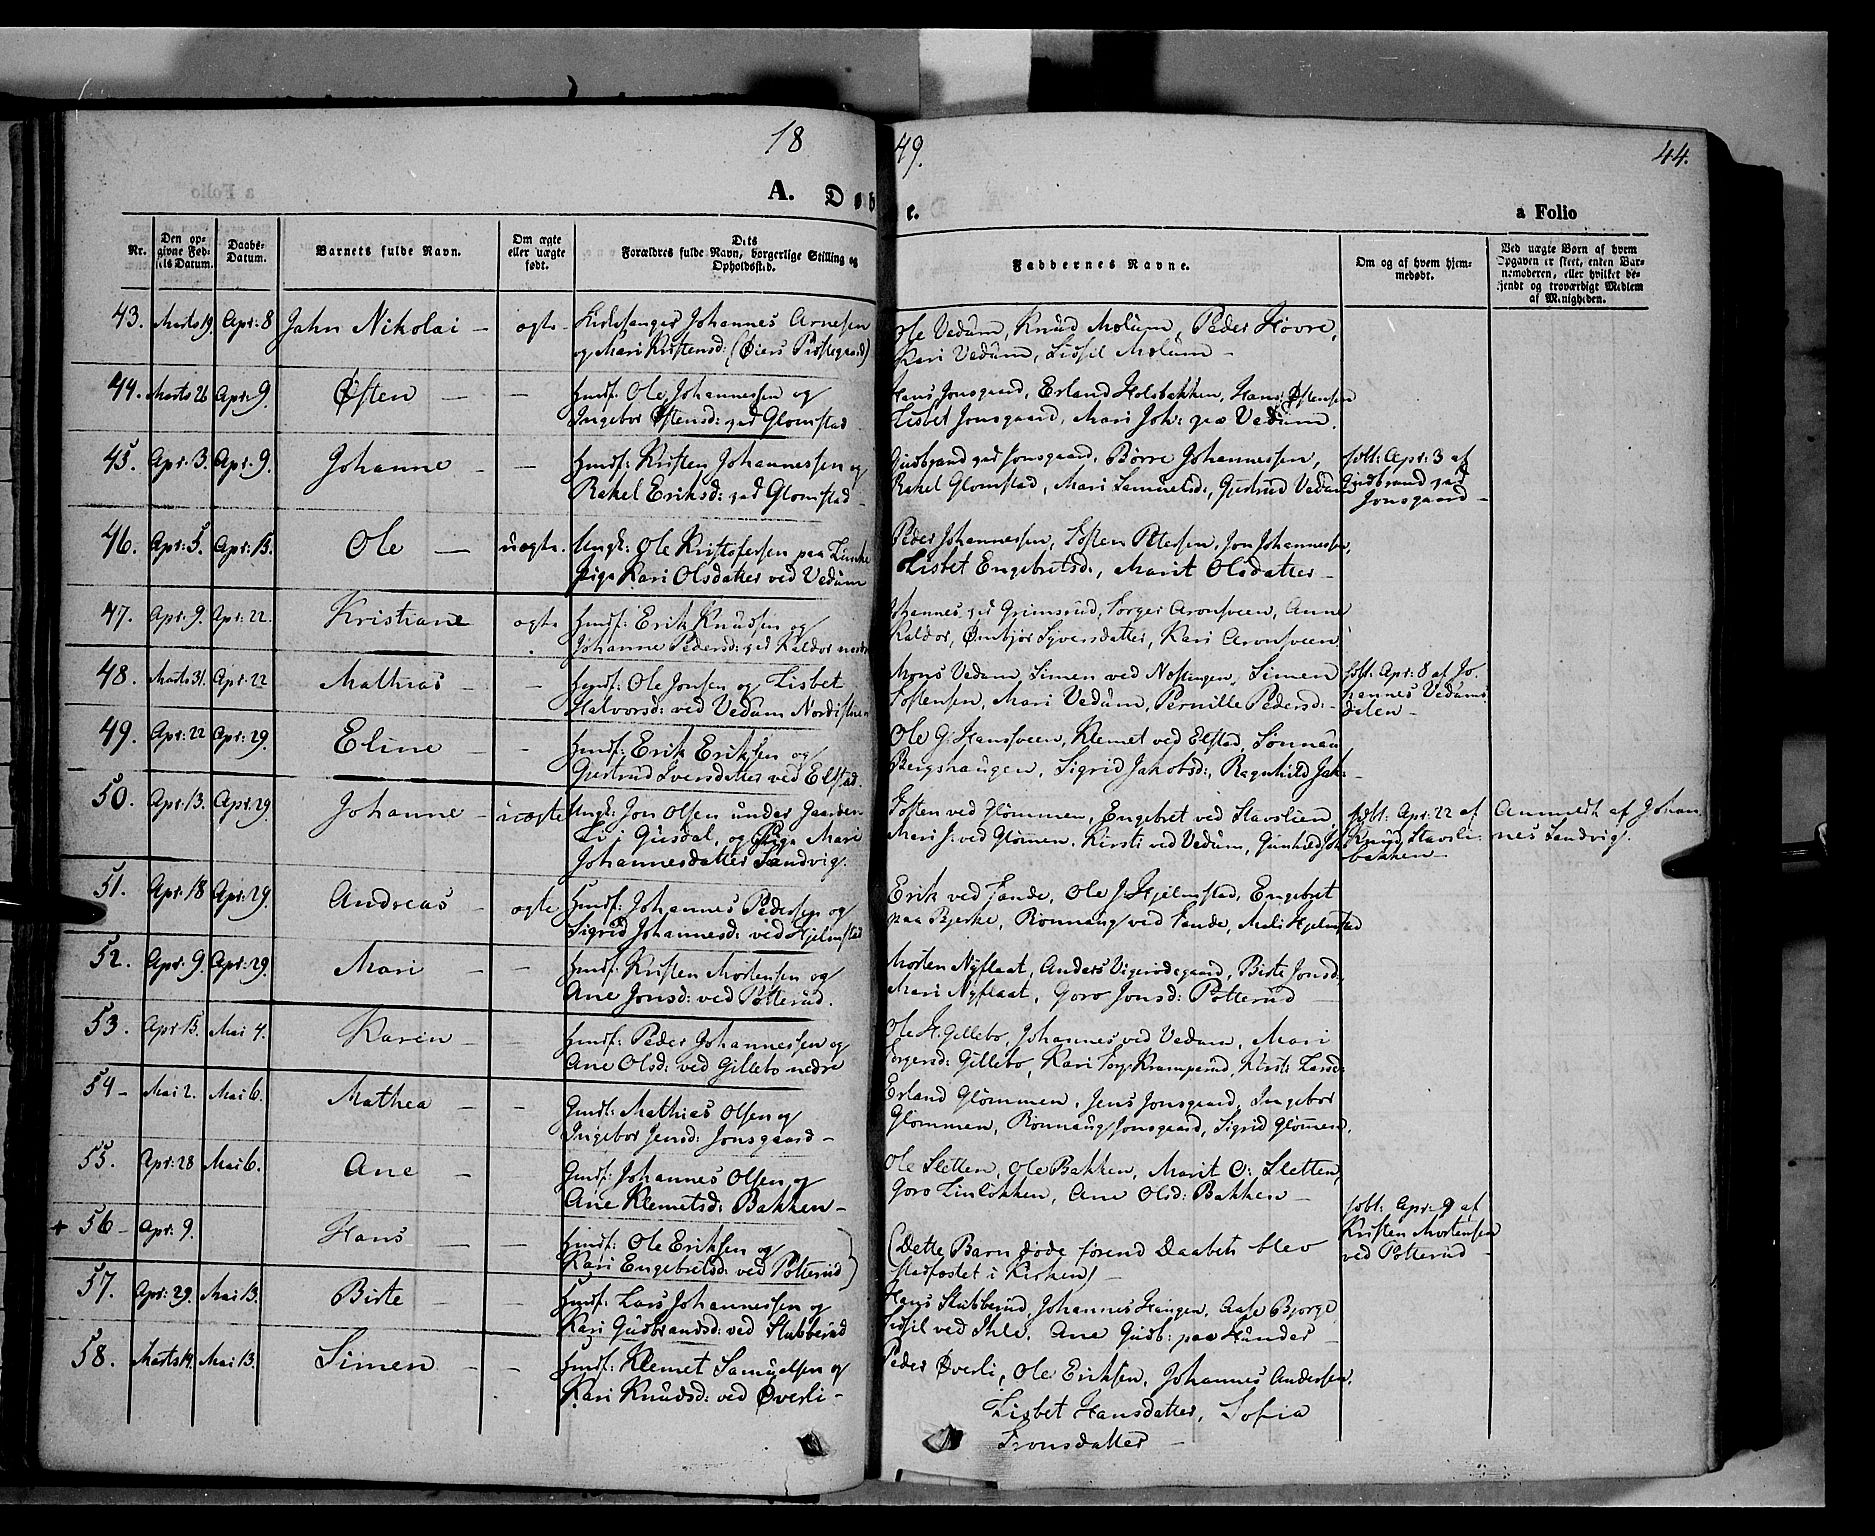 18
49.
44.
A. Døb
e.
a Folio
Nr.
Den op-
givne Fød-
sels Datum.
Daabs-
Datum.
Barnets fulde Navn.
Om ægte
eller uægte
født.
Dets
Forældres fulde Navn, borgerlige Stilling og
Opholdssted.
Faddernes Navne.
Om og af hvem hjem-
medøbt.
Ved uægte Børn af hvem
Opgaven er skeet, enten Bar-
nemoderen, eller hvilket be-
kjendt og troværdigt Medlem
af Menigheden.
43. Marts 19 Apr: 8 Jahn Nikolai — ægte — Kirkesanger Johannes Arnesen Ole Vedum, Knud Molum, Peder Hovre,
og Mari Kristensd: (Øiers Præstegaard) Kari Vedum, Sidsil Molum —
44. Marts 26 Apr: 9. Østen — — Husf: Ole Johannessen og Hans Jonsgaard, Erland Holsbakken, Hans Østensen
Ingebor Østensd: ved Glomstad Lisbet Jonsgaard, Mari Joh: paa Vedum.
45. Apr: 3. Apr: 9. Johanne — — Husf: Kristen Johannessen og Gudbrand ved Jonsgaard, Børre Johannessen, døbt: Apr: 3 af
Rakel Eriksd: ved Glomstad — Rakel Glomstad, Mari Samuelsd:, Gjertrud Vedum Gudbrand ved
Jonsgaard —
46. Apr: 5. Apr: 15. Ole — uægte. Ungk: Ole Kristofersen paa Peder Johannessen, Tosten Petersen, Jon Johannessen,
Pige Kari Olsdatter ved Vedum Lisbet Engebretsd:, Marit Olsdatter —
47. Apr: 9. Apr: 22. Kristiane ægte Husf: Erik Knudsen og Johannes ved Grimsrud, Torger Aronsveen, Anne
Johanne Pedersd: ved Kaldor nordre Kaldor, Ømbjør Syversdatter, Kari Aronsveen
48. Marts 31. Apr: 22 Mathias — — Husf: Ole Jonsen og Lisbet Mons Vedum, Simen ved Nostengen, Simen døbt: Apr: 8 af Jo-
Halvorsd: ved Vedum Nordistuen Tostensen, Mari Vedum, Pernille Pedersd: — hannes Vedums-
dalen —
49. Apr: 22 Apr: 29. Eline — — Husf: Erik Eriksen og Ole G: Hansveen, Klemet ved Elstad, Sønnau
Gjertrud Iversdatter ved Elstad. Bergshaugen, Sigrid Jakobsd:, Ragnhild Jak: —
50. Apr: 13. Apr: 29. Johanne — uægte Ungk: Jon Olsen under Gaarden Tosten ved Glømmen, Engebret ved Stavslien døbt: Apr: 22 af Anmeldt af Johan
Li i Gusdal, og Pige Mari Mari J: ved Glømmen, Kirsti ved Vedum, Gunhild Knud Stavsli- nes Sandvig.
Johannesdatter Sandvig. bakken
51. Apr: 18 Apr: 29. Andreas — ægte Husf: Johannes Pedersen og Erik ved Tande, Ole J: Hjelmstad, Engebret
Sigrid Johannesd: ved Hjelmstad paa Bjerke, Rønnaug ved Tande, Mali Hjelmstad
52. Apr: 9. Apr: 29. Mari — — Husf: Kristen Mortensen og Morten Nyflaat, Anders Vigerødegaard, Birte Jonsd:,
Ane Jonsd: ved Potterud. Mari Nyflaat, Goro Jonsd: Potterud
53. Apr: 15. Mai 4. Karin — — Husf: Peder Johannessen og Ole H: Gillebo, Johannes ved Vedum, Mari
Ane Olsd: ved Gillebo nedre Torgersd: Gillebo, Kari Torg: Kramperud, Kirsti Larsd:
54 — Mai 2. Mai 6. Mathea — — Husf: Mathias Olsen og Erland Glømmen, Jens Jonsgaard, Ingebor
Ingebor Jensd: Jonsgaard — Glømmen, Rønnaug Jonsgaard, Sigrid Glømmen.
55. Apr: 28 Mai 6. Ane — Husf: Johannes Olsen og Ole Sletten, Ole Bakken, Marit O: Sletten,
Ane Klemetsd: Bakken — Goro Linløkken, Ane Olsd: Bakken —
+ 56 — Apr: 9. Hans — — Husf: Ole Eriksen og (Dette Barn døde førend Daaben blev døbt: Apr: 9 af
Kari Engebretsd: ved Potterud) stadfæstet i Kirken) — Kristen Mortensen
ved Potterud —
57. Apr: 29. Mai 13. Birte — — Husf: Lars Johannessen og Hans Stubberud, Johannes Haugen, Aase Bjørge,
Kari Gudbrandsd: ved Stubberud Sidsil ved Ihle, Ane Gudb: paa Hunder —
58. Marts 14. Mai 13. Simen — — Husf: Klemet Samuelsen og Peder Øverli, Ole Eriksen, Johannes Andersen.
Kari Knudsd: ved Øverli — Lisbet Hansdatter, Sofia
Tronsdatter —